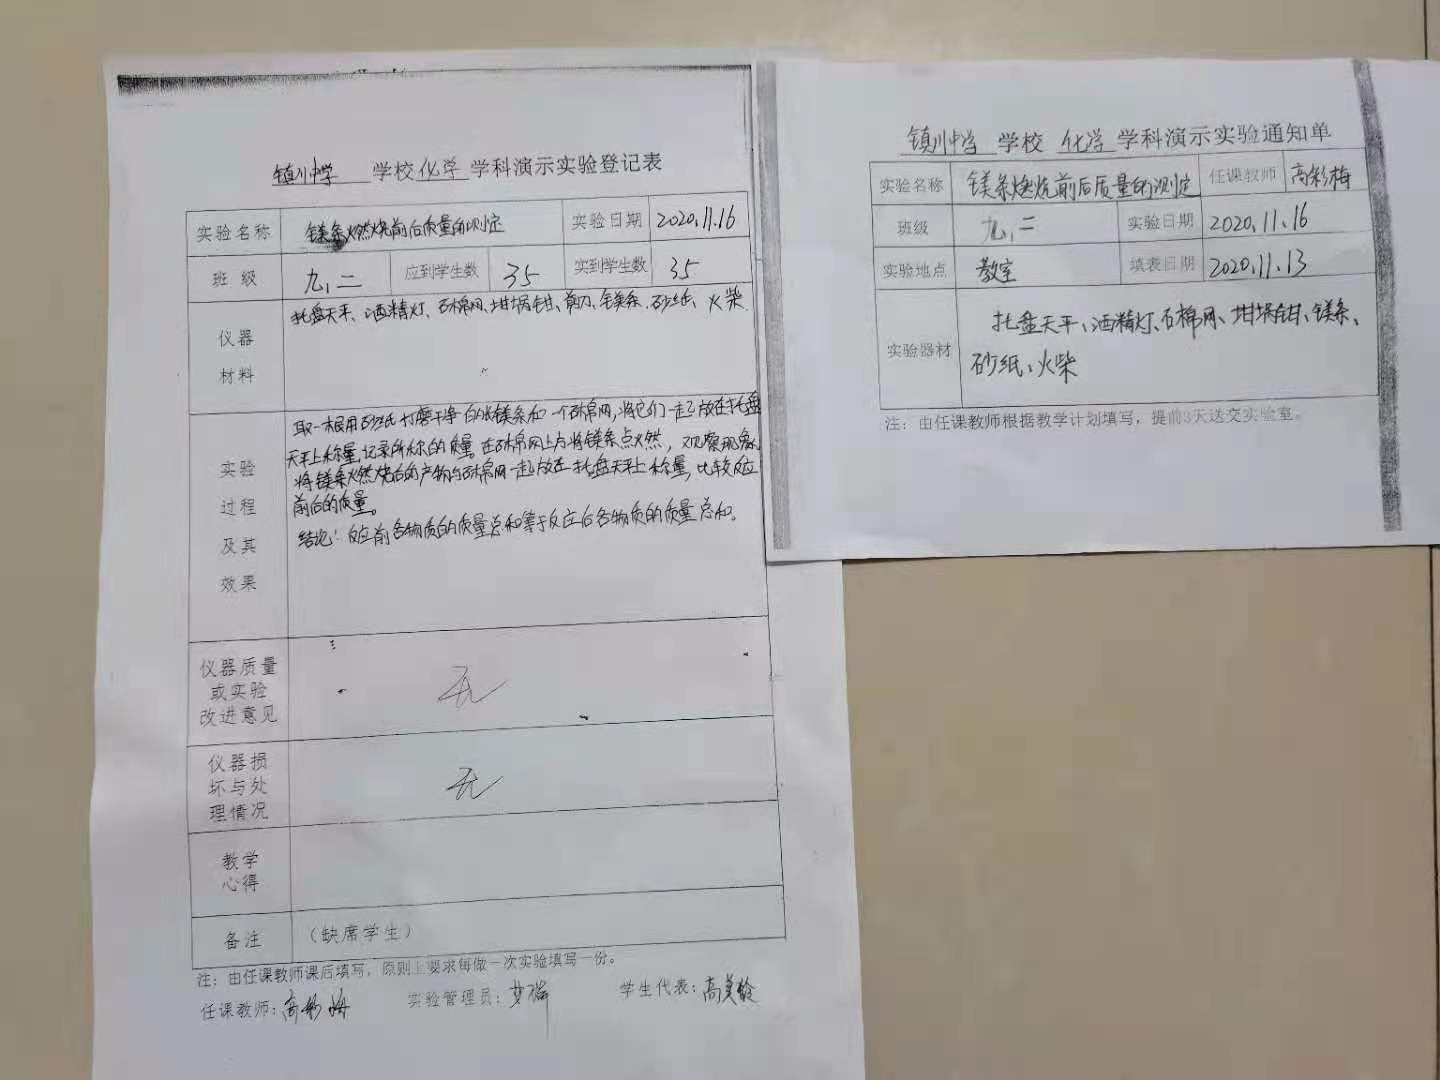 镇川中学 学校 化学 学科演示实验登记表
实验名称 镁条燃烧前后质量的测定 实验日期 2020.11.16
班级 九.二 应到学生数 35 实到学生数 35
仪器材料 托盘天平、酒精灯、石棉网、坩埚钳、剪刀、镁条、砂纸、火柴
实验过程及其效果
取一根用砂纸打磨干净的长镁条和一个石棉网,将它们一起放在托盘
天平上称量,记录所称的质量。在石棉网上方将镁条点燃,观察现象。
将镁条燃烧后的产物与石棉网一起放在托盘天平上称量,比较反应
前后的质量。
结论:反应前各物质的质量总和等于反应后各物质的质量总和。
仪器质量或实验改进意见 无
仪器损坏与处理情况 无
教学心得
备注 (缺席学生)
注:由任课教师课后填写,原则上要求每做一次实验填写一份。
任课教师:高彩梅 实验管理员:艾瑞 学生代表:高美龄
镇川中学 学校 化学 学科演示实验通知单
实验名称 镁条燃烧前后质量的测定 任课教师 高彩梅
班级 九.二 实验日期 2020.11.16
实验地点 教室 填表日期 2020.11.13
实验器材 托盘天平、酒精灯、石棉网、坩埚钳、镁条、
砂纸、火柴
注:由任课教师根据教学计划填写,提前3天送交实验室。